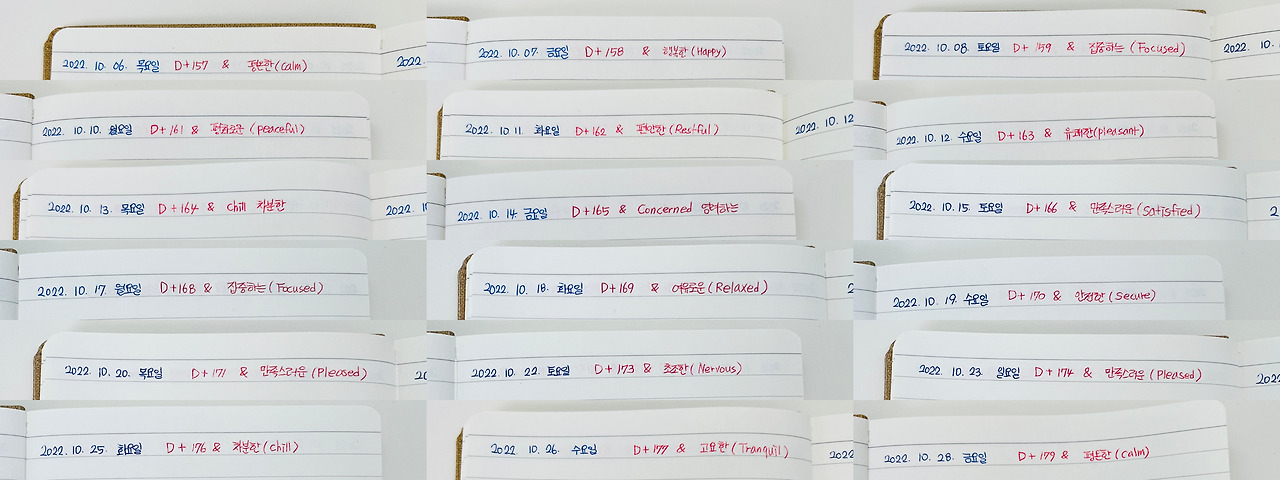 2022. 10. 06. 목요일 D+157 & 평온한(calm) 2022.
2022. 10. 07. 금요일 D+158 & 행복한(Happy)
2022. 10. 08. 토요일 D+159 & 집중하는(Focused) 2022. 10.
2022. 10. 10. 월요일 D+161 & 평화로운(peaceful)
2022. 10 11. 화요일 D+162 & 편안한(Restful) 2022. 10. 12
2022. 10. 12. 수요일 D+163 & 유쾌한(pleasant)
2022. 10. 13. 목요일 D+164 & chill 차분한 2022. 10
2022. 10. 14. 금요일 D+165 & Concerned 염려하는
2022. 10. 15. 토요일 D+166 & 만족스러운(satisfied) 2
2022. 10. 17. 월요일 D+168 & 집중하는(Focused)
2022. 10. 18. 화요일 D+169 & 여유로운(Relaxed) 2
2022. 10. 19. 수요일 D+170 & 안전한(secure)
2022. 10. 20. 목요일 D+171 & 만족스러운(Pleased) 20
2022. 10. 22. 토요일 D+173 & 초조한(Nervous)
2022. 10. 23. 일요일 D+174 & 만족스러운(Pleased) 2022
2022. 10. 25. 화요일 D+176 & 차분한(chill)
2022. 10. 26. 수요일 D+177 & 고요한(Tranquil) 2022.
2022. 10. 28. 금요일 D+179 & 평온한(calm)